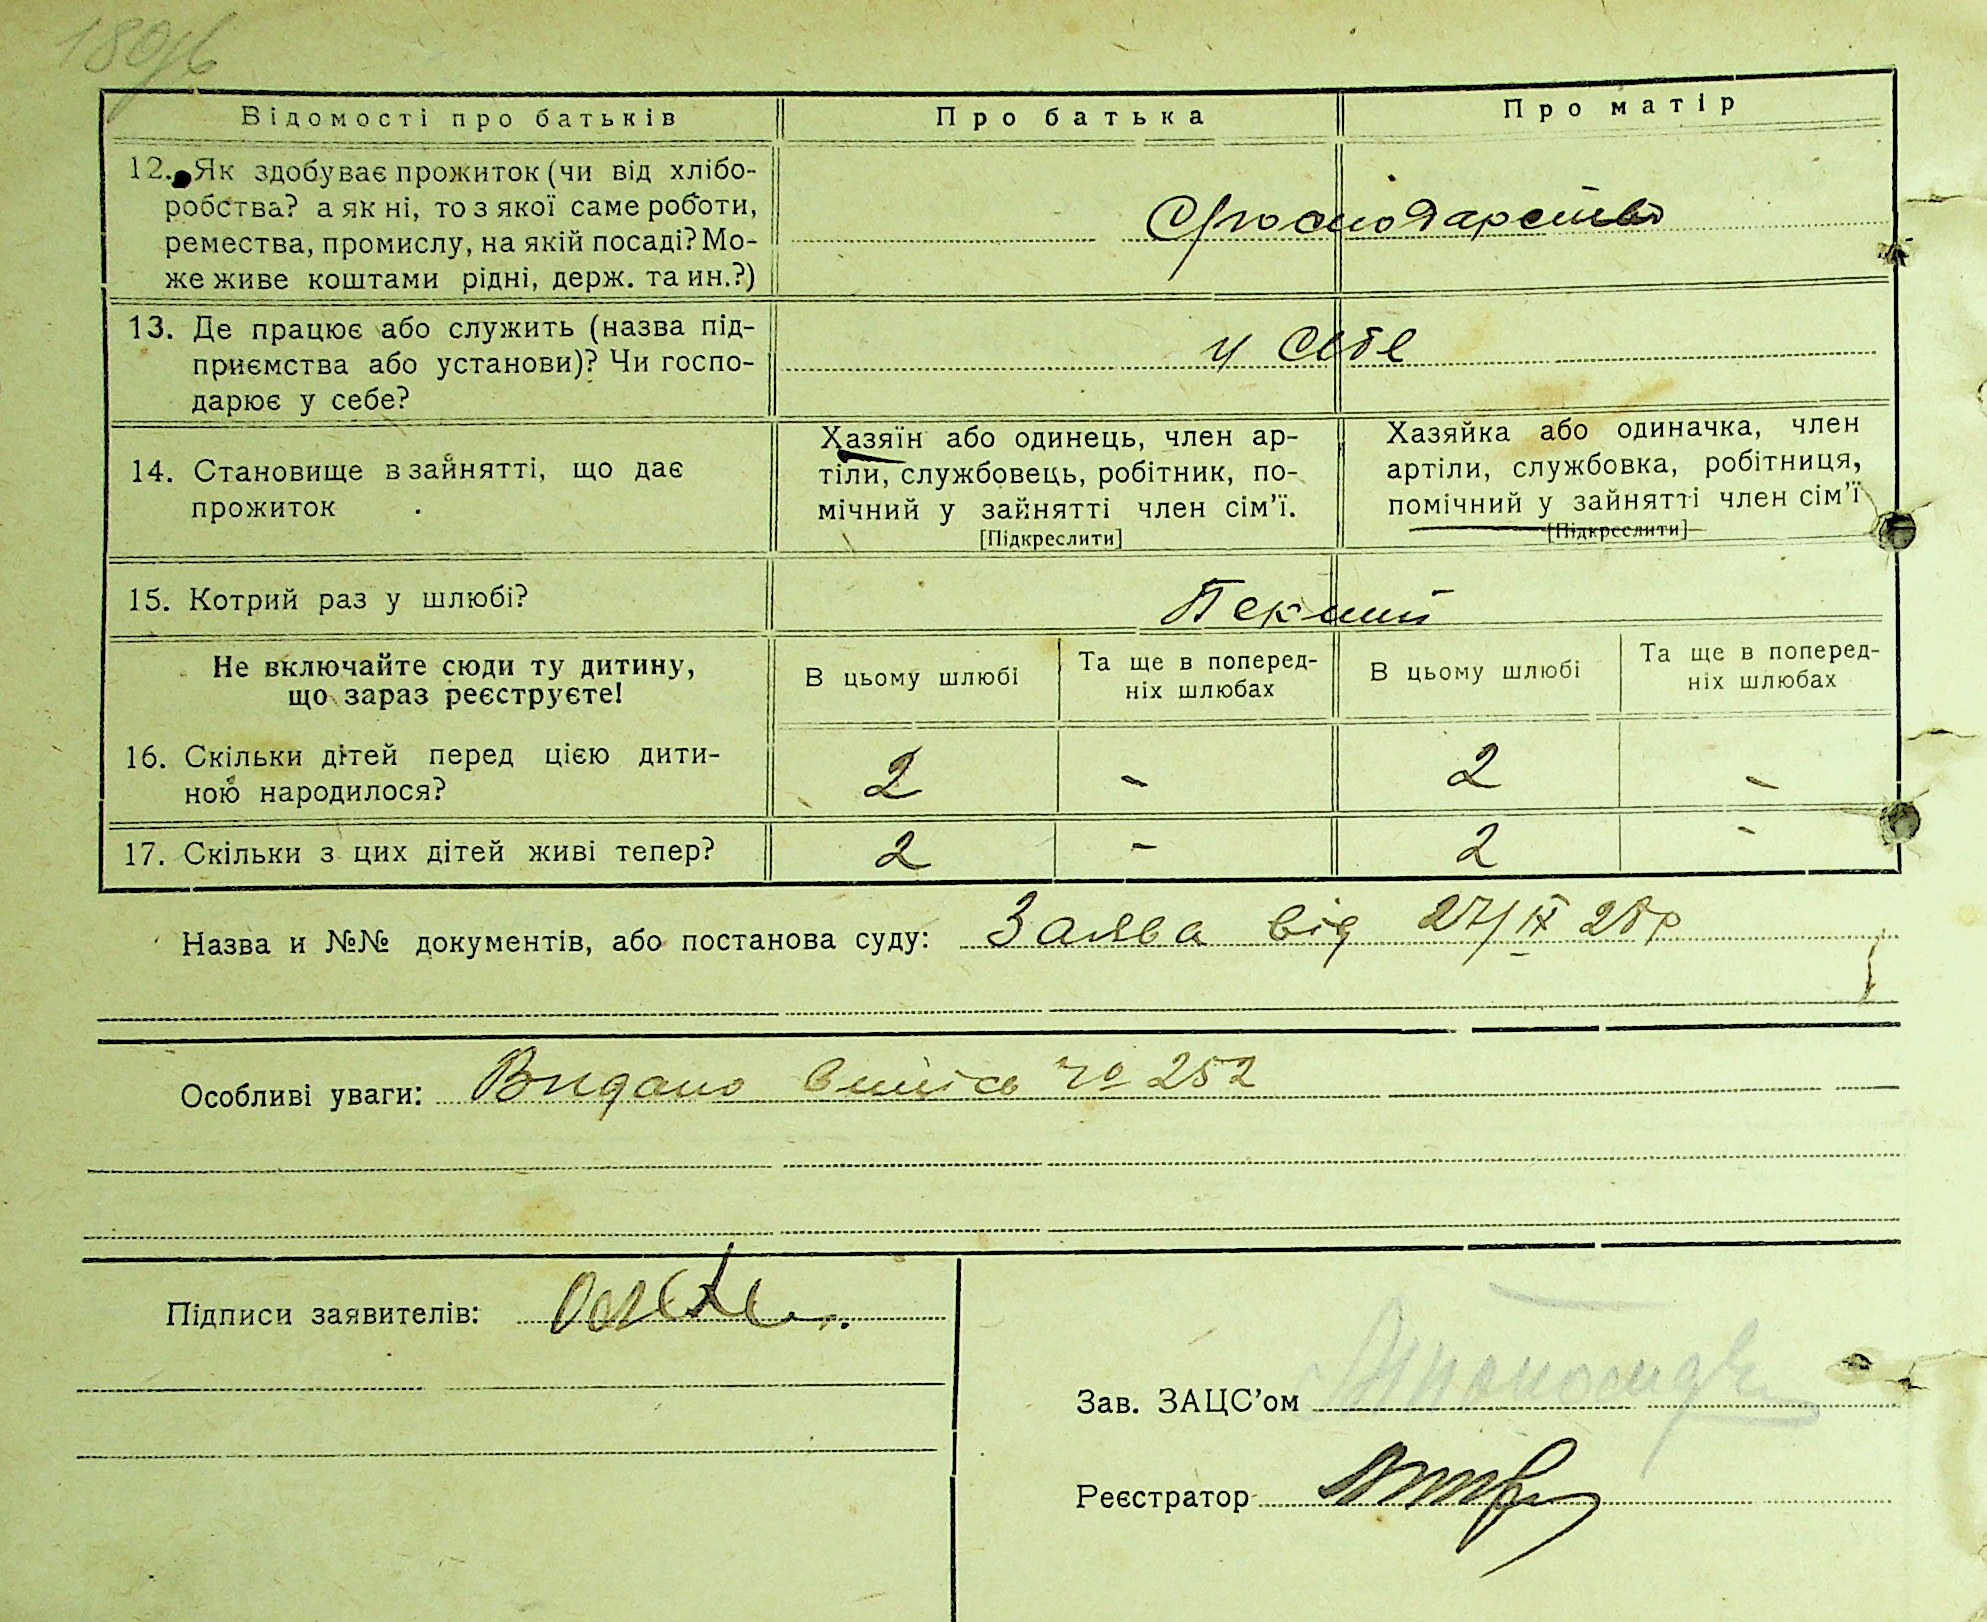 Відомості про батьків
Про батька
Про матір
12. Як здобуває прожиток (чи від хлібо-
робства? а як ні, то з якої саме роботи,
ремества, промислу, на якій посаді? Мо-
же живе коштами рідні, держ. та ин.?)
13. Де працює або служить (назва під-
приємства або установи)? Чи госпо-
дарює у себе?
у себе
14. Становище в зайнятті, що дає
прожиток
Хазяїн або одинець, член ар-
тіли, службовець, робітник, по-
мічний у зайнятті член сім'ї.
[Підкреслити]
Хазяйка або одиначка, член
артіли, службовка, робітниця,
помічний у зайнятті член сім'ї
[Підкреслити]
15. Котрий раз у шлюбі?
Не включайте сюди ту дитину,
що зараз реєструєте!
В цьому шлюбі
Та ще в поперед-
ніх шлюбах
В цьому шлюбі
Та ще в поперед-
ніх шлюбах
16. Скільки дітей перед цією дити-
ною народилося?
2 - 2 -
17. Скільки з цих дітей живі тепер?
2 - 2 -
Назва и №№ документів, або постанова суду: Заява від 27/IX 28р
Особливі уваги: Видано випись № 252
Підписи заявителів:
Зав. ЗАЦС'ом
Реєстратор